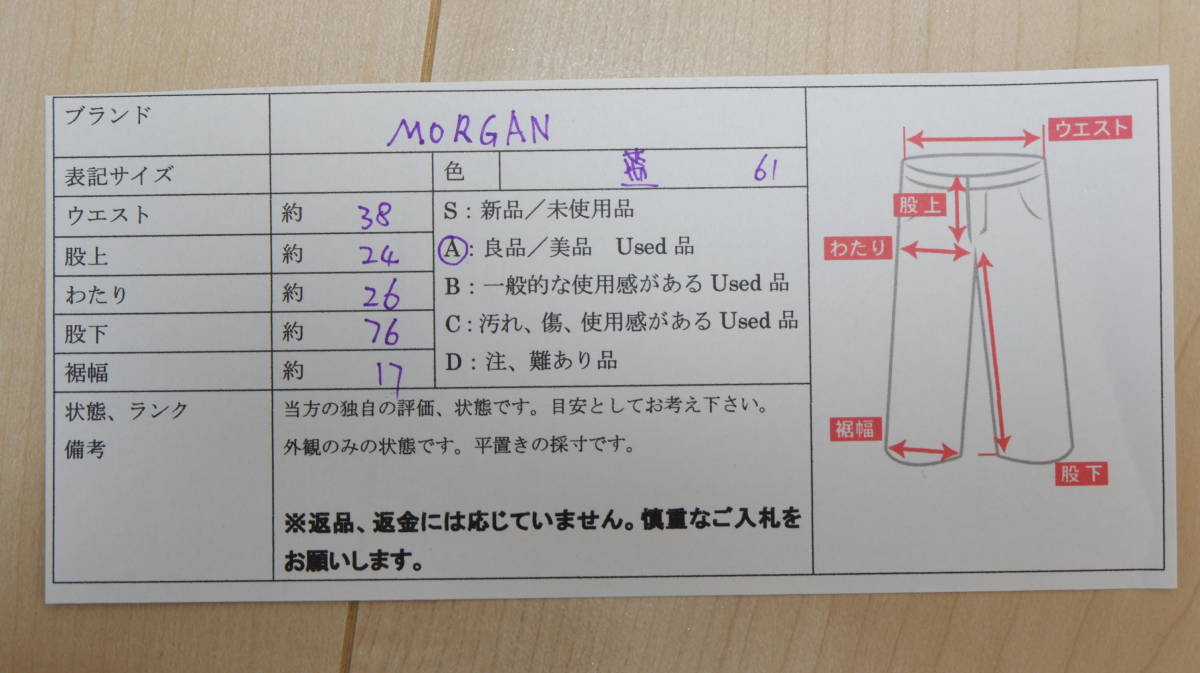 ブランド MORGAN
表記サイズ 色 61
ウエスト 約 38
股上 約 24
わたり 約 26
股下 約 76
裾幅 約 17
S：新品／未使用品
A：良品／美品 Used 品
B：一般的な使用感がある Used 品
C：汚れ、傷、使用感がある Used 品
D：注、難あり品
状態、ランク
備考
当方の独自の評価、状態です。目安としてお考え下さい。
外観のみの状態です。平置きの採寸です。
※返品、返金には応じていません。慎重なご入札を
お願いします。
ウエスト
股上
わたり
裾幅
股下